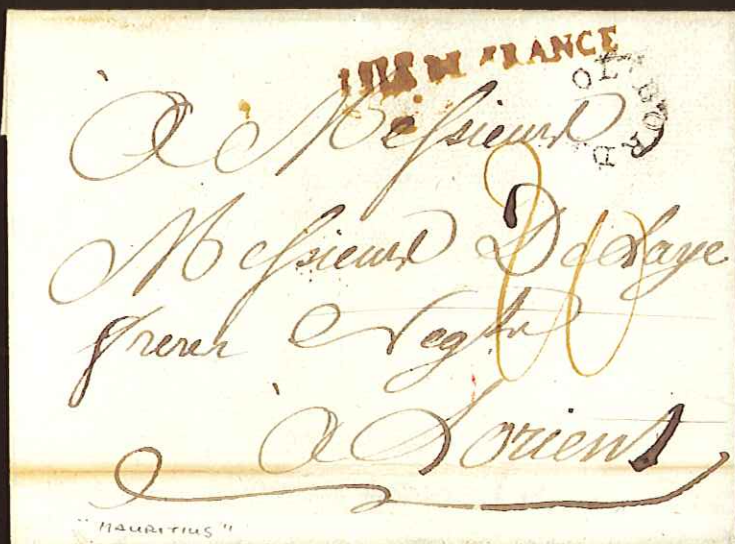 ISLE DE FRANCE
À Messieurs
Messieurs DeLaye
freres Negts
à Lorient
20
"MAURITIUS"